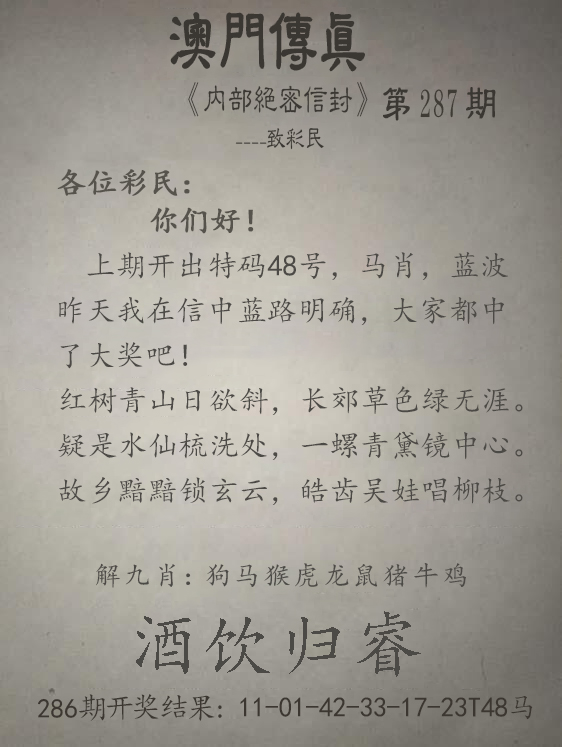 澳門傳眞
《内部絕密信封》第287期
----致彩民
各位彩民：
你们好！
上期开出特码48号，马肖，蓝波
昨天我在信中蓝路明确，大家都中
了大奖吧！
红树青山日欲斜，长郊草色绿无涯。
疑是水仙梳洗处，一螺青黛镜中心。
故乡黯黯锁玄云，皓齿吴娃唱柳枝。
解九肖：狗马猴虎龙鼠猪牛鸡
酒饮归睿
286期开奖结果：11-01-42-33-17-23T48马